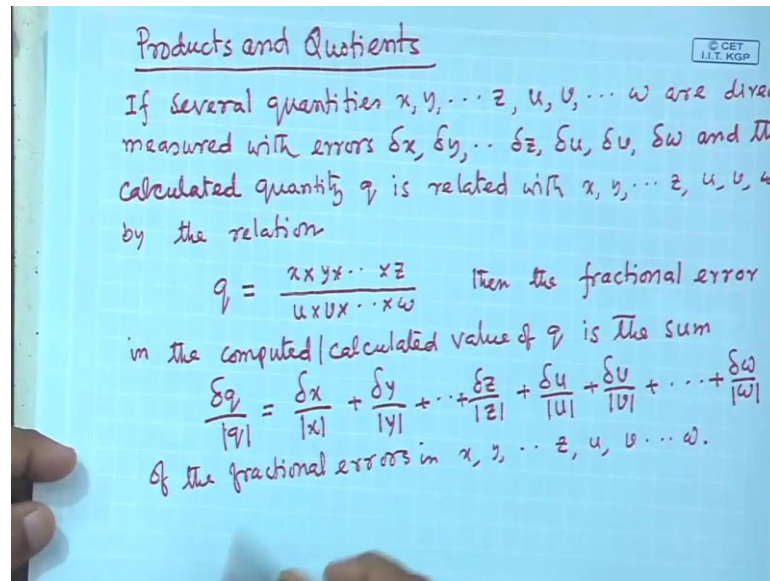 Products and Quotients
© CET
I.I.T. KGP
If several quantities x, y, ··· z, u, v, ··· w are
measured with errors δx, δy, ·· δz, δu, δv, δw and
calculated quantity q is related with x, y, ··· z, u, v,
by the relation
q = x × y × ·· × z / u × v × ·· × w then the fractional error
in the computed/calculated value of q is the sum
δq/|q| = δx/|x| + δy/|y| + ·· + δz/|z| + δu/|u| + δv/|v| + ··· + δw/|w|
of the fractional errors in x, y, ·· z, u, v ··· w.